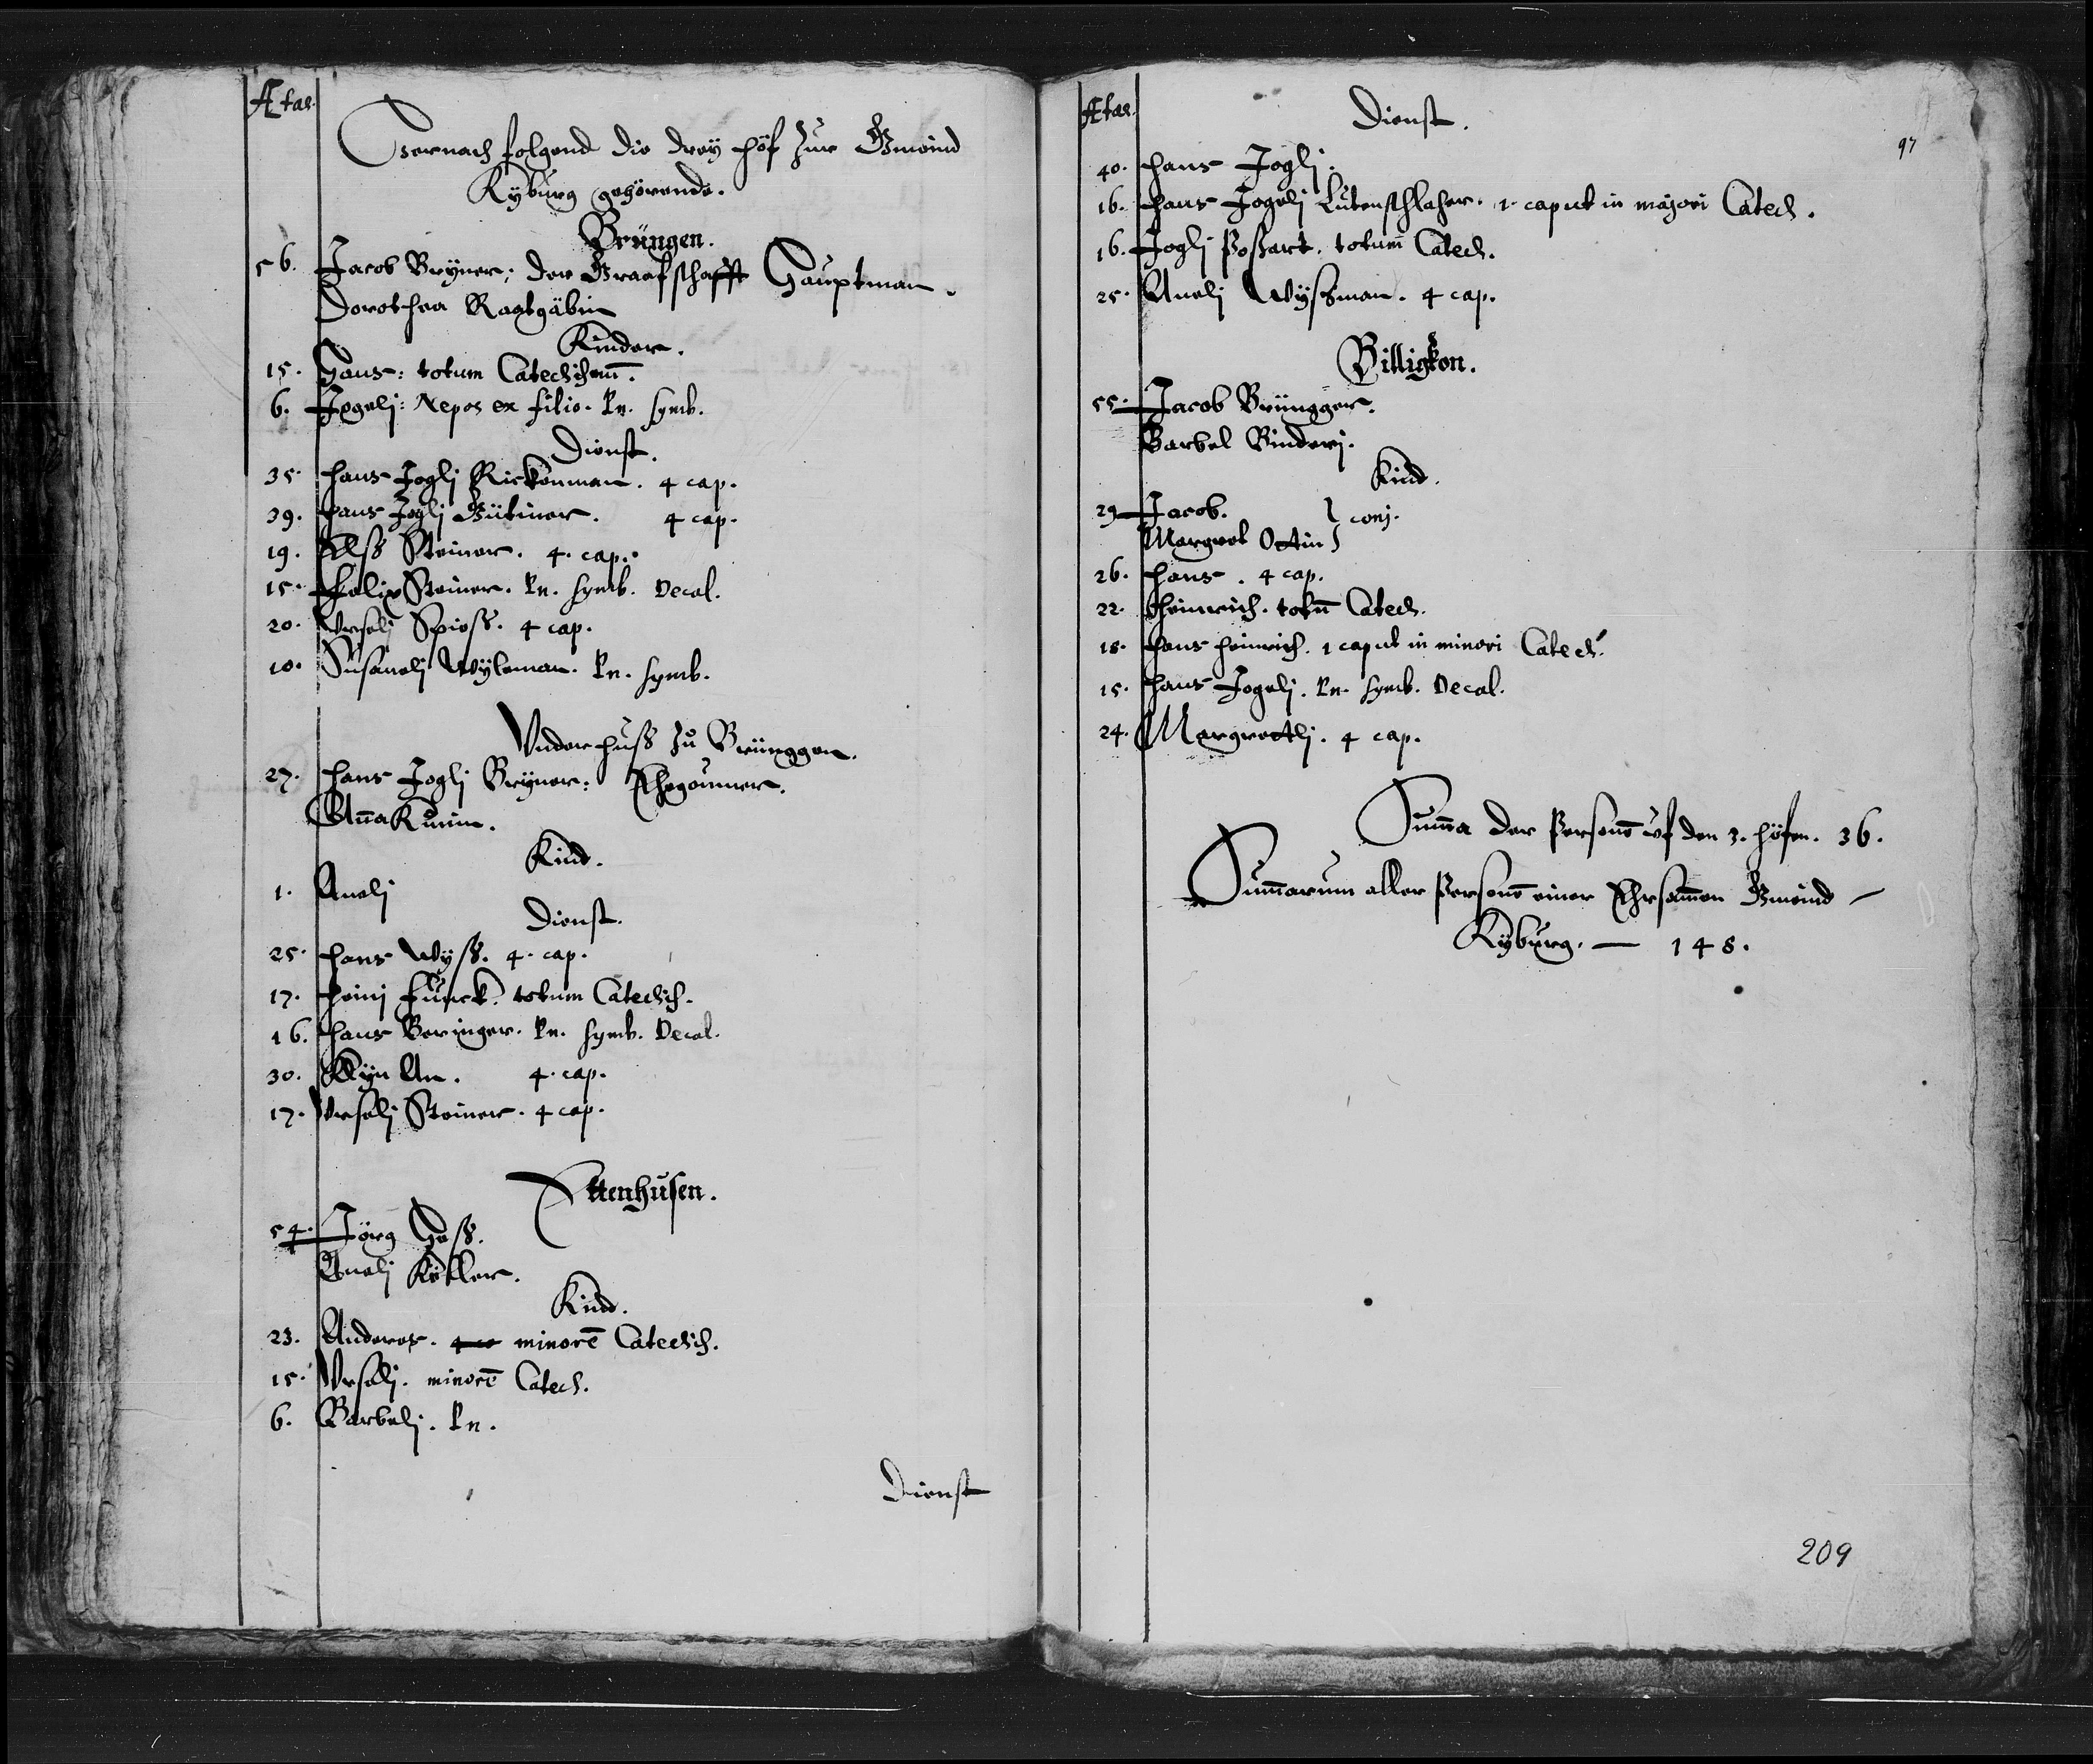 Ætas.
Hernach folgend die drey höf zur Gmeind
Kyburg gehörende.
Brüngen.
56. Jacob Bryner; der Graafschafft Hauptman.
Dorothea Raatgäbin
Kinder.
15. Hans: totum Catechismū.
6. Jogeli: Nepos ex filio. Pn. symb.
Dienst.
35. Hans Jogli Rickenman. 4 cap.
39. Hans Jogli Gütiner. 4 cap.
19. Elss Steiner. 4. cap.
15. Felix Steiner. Pn. symb. Decal.
20. Urseli Spiess. 4 cap.
10. Susaneli Wyleman. Pn. symb.
Underhuss zů Brünggen.
27. Hans Jogli Bryner: Ehegoumer.
Añna Kunin.
Kind.
1. Aneli
Dienst.
25. Hans Wyss. 4. cap.
17. Heini Funck. totum Catechis.
16. Hans Beringer. Pn. symb. Decal.
30. Klyn An. 4. cap.
17. Urseli Steiner. 4 cap.
Ettenhusen.
54. Jörg Hess.
Aneli Keller.
Kind.
23. Anderes. minorē Catechis.
15. Urseli. minorē Catech.
6. Barbeli. Pn.
Dienst
Ætas.
Dienst.
97
40. Hans Jogli.
16. Hans Jogeli Lutenschlaher. 1. caput in majori Catech.
16. Jogli Possart. totum Catech.
25. Aneli Wyssman. 4 cap.
Billigkon.
55. Jacob Brüngger.
Barbel Binderi.
Kind.
29 Jacob. } conj.
Margret Ottin
26. Hans. 4 cap.
22. Heinrich. totū Catech.
18. Hans Heinrich. 1 caput in minori Catech.
15. Hans Jogeli. Pn. symb. Decal.
24. Margretli. 4 cap.
Sum̄a der Personē uf den 3. höfen. 36.
Sum̄arum aller Personē einer Ehrsam̄en Gmeind
Kyburg. — 148.
209